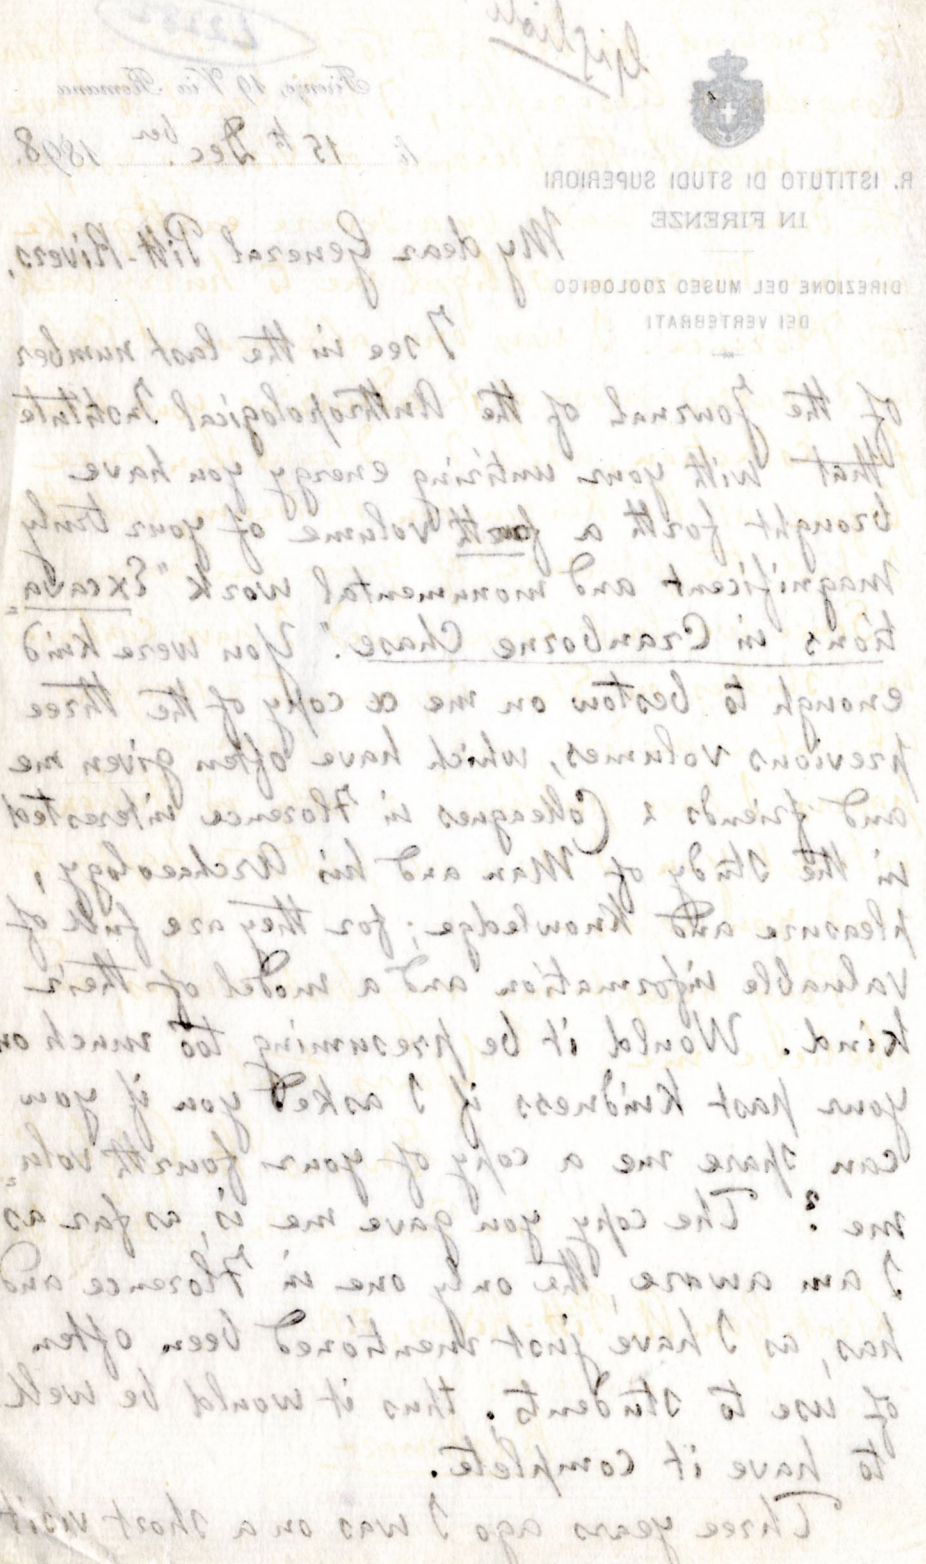 L2252
Giglioli
Firenze, 19 Via Romana
li 15th Decber 1898.
R. ISTITUTO DI STUDI SUPERIORI
IN FIRENZE
DIREZIONE DEL MUSEO ZOOLOGICO
DEI VERTEBRATI
My dear General Pitt-Rivers,
I see in the last number
of the Journal of the Anthropological Institute
that with your untiring energy you have
brought forth a fourth volume of your truly
magnificent and monumental work "Excava=
tions in Cranborne Chase." You were kind
enough to bestow on me a copy of the three
previous volumes, which have often given me
and friends & Colleagues in Florence interested
in the study of Man and his Archaeology,
pleasure and knowledge; for they are full of
valuable information and a model of their
kind. Would it be presuming too much on
your past kindness if I asked you if you
can spare me a copy of your fourth volu=
me? The copy you gave me is, as far as
I am aware, the only one in Florence and
has, as I have just mentioned been often
of use to students, thus it would be well
to have it complete.
Three years ago I was on a short visit